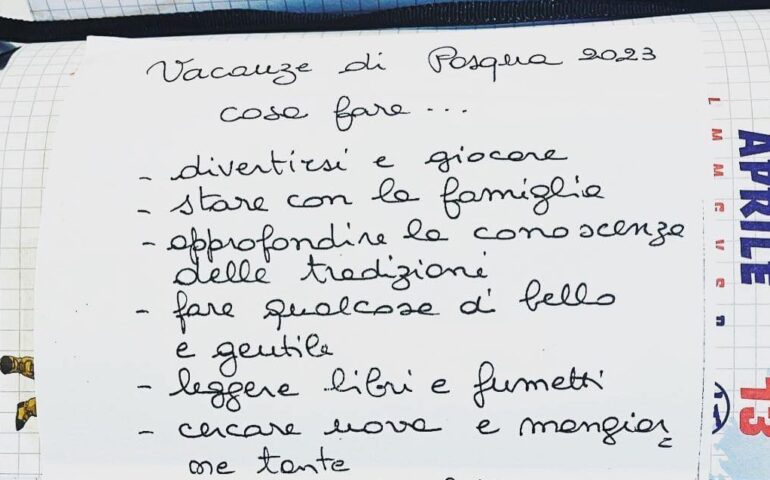 Vacanze di Pasqua 2023
cosa fare...
- divertirsi e giocare
- stare con la famiglia
- approfondire la conoscenza
delle tradizioni
- fare qualcosa di bello
e gentile
- leggere libri e fumetti
- cercare uova e mangiar
ne tante
APRILE
L M M G V S D
13